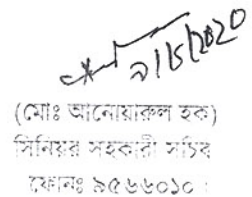 ৯/৮/২০২০
(মোঃ আনোয়ারুল হক)
সিনিয়র সহকারী সচিব
ফোনঃ ৯৫৬৬০১০।